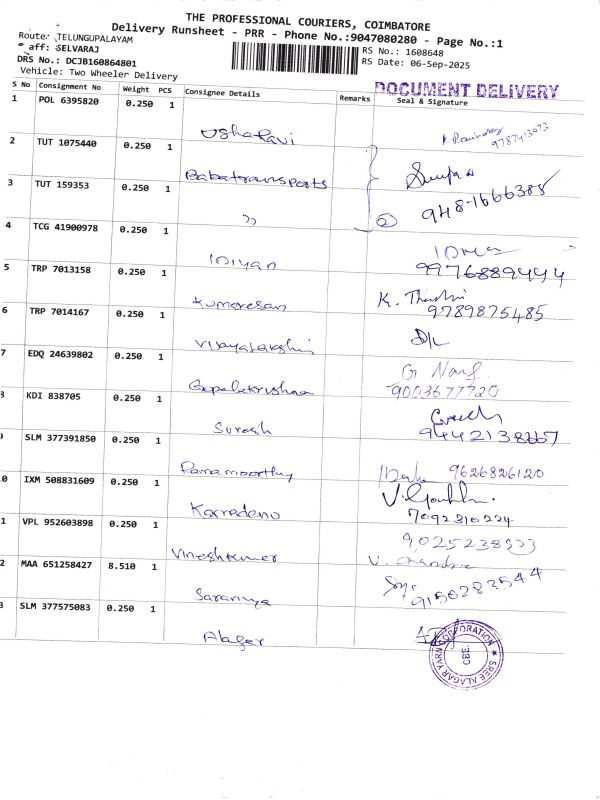 THE PROFESSIONAL COURIERS, COIMBATORE
Delivery Runsheet - PRR - Phone No.:9047080280 - Page No.:1
Route: TELUNGUPALAYAM
aff: SELVARAJ RS No.: 1608648
DRS No.: DCJB160864801 RS Date: 06-Sep-2025
Vehicle: Two Wheeler Delivery
DOCUMENT DELIVERY
S No Consignment No Weight PCS Consignee Details Remarks Seal & Signature
1 POL 6395820 0.250 1 Usha Ravi 9787413073
2 TUT 1075440 0.250 1 Babatransports
3 TUT 159353 0.250 1 " 2 948-1666385
4 TCG 41900978 0.250 1 Iniyan 9976889444
5 TRP 7013158 0.250 1 Kumaresan K. 9789875485
6 TRP 7014167 0.250 1 Vijayalakshmi D/L
7 EDQ 24639802 0.250 1 Gopalakrishnan G 9003677720
8 KDI 838705 0.250 1 Suresh 9442138667
9 SLM 377391850 0.250 1 Ramamoorthy 9626826120
0 IXM 508831609 0.250 1 V. 7092310224
1 VPL 952603898 0.250 1 Vineshkumar 9025238533 V.
2 MAA 651258427 8.510 1 Saranya 9150283544
3 SLM 377575083 0.250 1 Alager
SREE ALAGAR YARN CORPORATION
CBE.